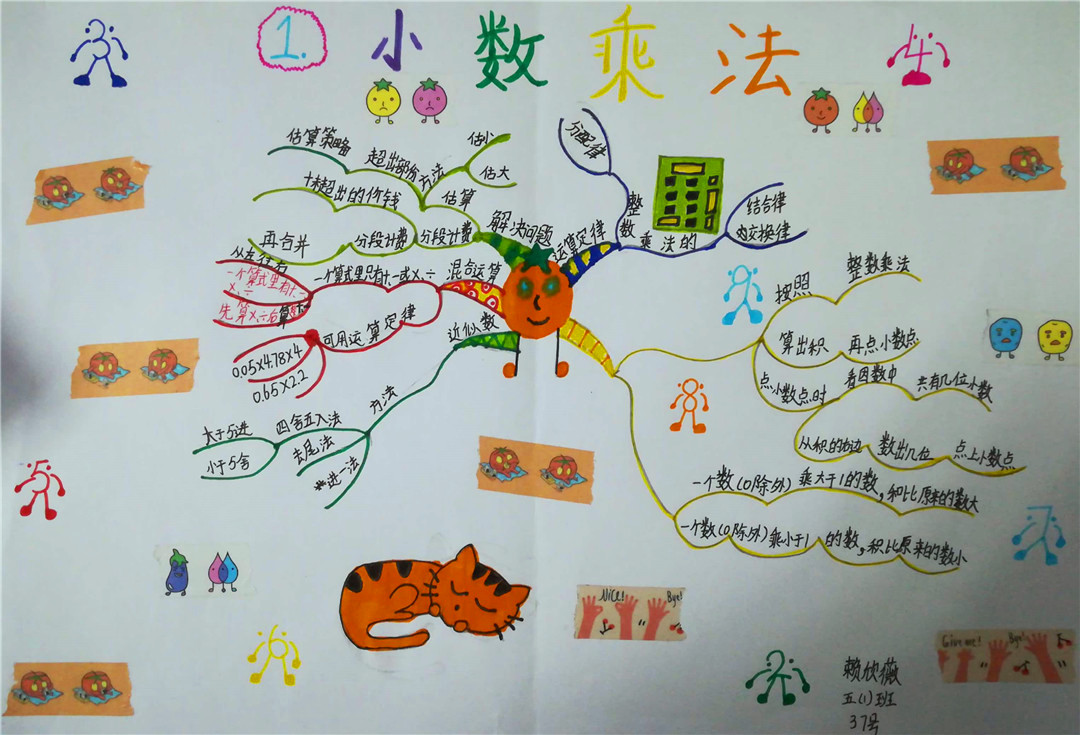 1. 小数乘法
估算策略
超出部份
方法
估小
估大
估算
超出的价钱
再合并
分段计费
分段计费
解决问题
从左往右
一个算式里有+、-
x、÷
先算x、÷后算
一个算式里只有+、-或x、÷
混合运算
可用运算定律
0.05×4.78×4
0.65×2.2
近似数
方法
四舍五入法
大于5进
小于5舍
去尾法
进一法
分配律
运算定律
整数乘法的
结合律
交换律
按照
整数乘法
算出积
再点小数点
点小数点时
看因数中
共有几位小数
从积的右边
数出几位
点上小数点
一个数(0除外)乘大于1的数,积比原来的数大
一个数(0除外)乘小于1的数,积比原来的数小
Nice!
Bye!
Give me!
Bye!
赖欣薇
五(1)班
37号